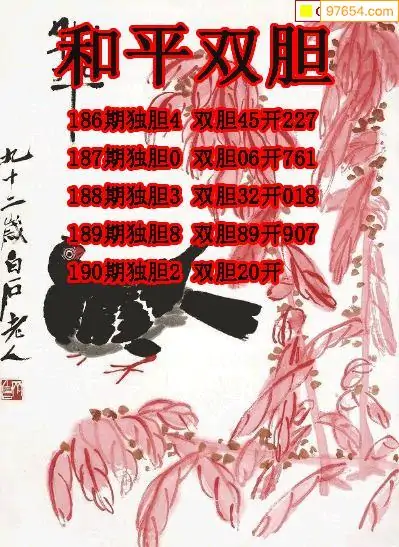 97654.com
和平双胆
186期独胆4 双胆45开227
187期独胆0 双胆06开761
188期独胆3 双胆32开018
189期独胆8 双胆89开907
190期独胆2 双胆20开
九十二岁白石老人